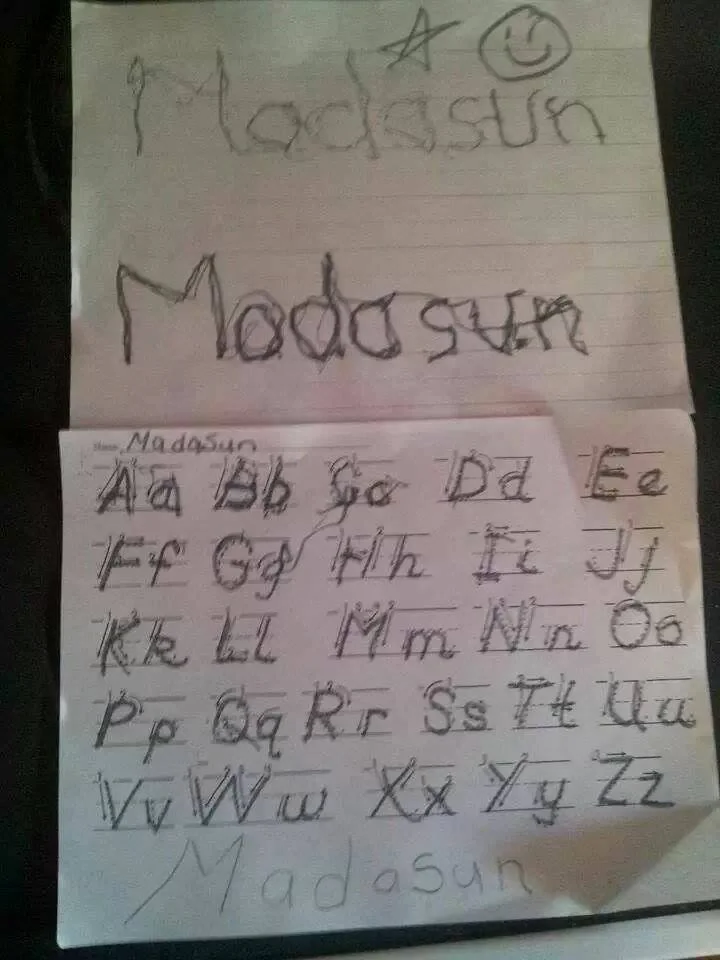 Madasun
Madasun
Name Madasun
Aa Bb Cc Dd Ee
Ff Gg Hh Ii Jj
Kk Ll Mm Nn Oo
Pp Qq Rr Ss Tt Uu
Vv Ww Xx Yy Zz
Madasun